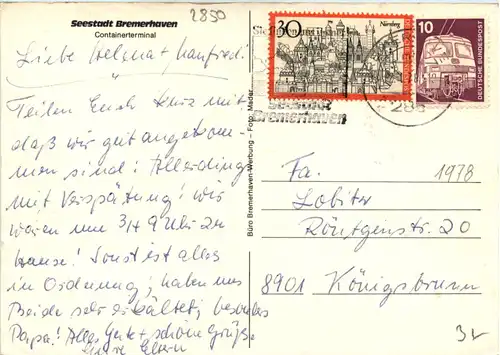 Seestadt Bremerhaven
Containerterminal
2850
Liebe Helma + Manfred!
Teilen Euch kurz mit
daß wir gut angekom-
men sind! Allerdings
mit Verspätung! Wir
waren um 3/4 9 Uhr zu
hause! Sonst ist alles
in Ordnung; haben uns
Beide sehr erkältet, besonders
Papa! Alles Gute + schöne Grüße
Eure Eltern
Büro Bremerhaven-Werbung – Foto: Mader
30
Nürnberg
10
DEUTSCHE BUNDESPOST
Seestadt
Bremerhaven
285
Fa.
1978
Lobiter
Röntgenstr. 20
8901 Königsbrunn